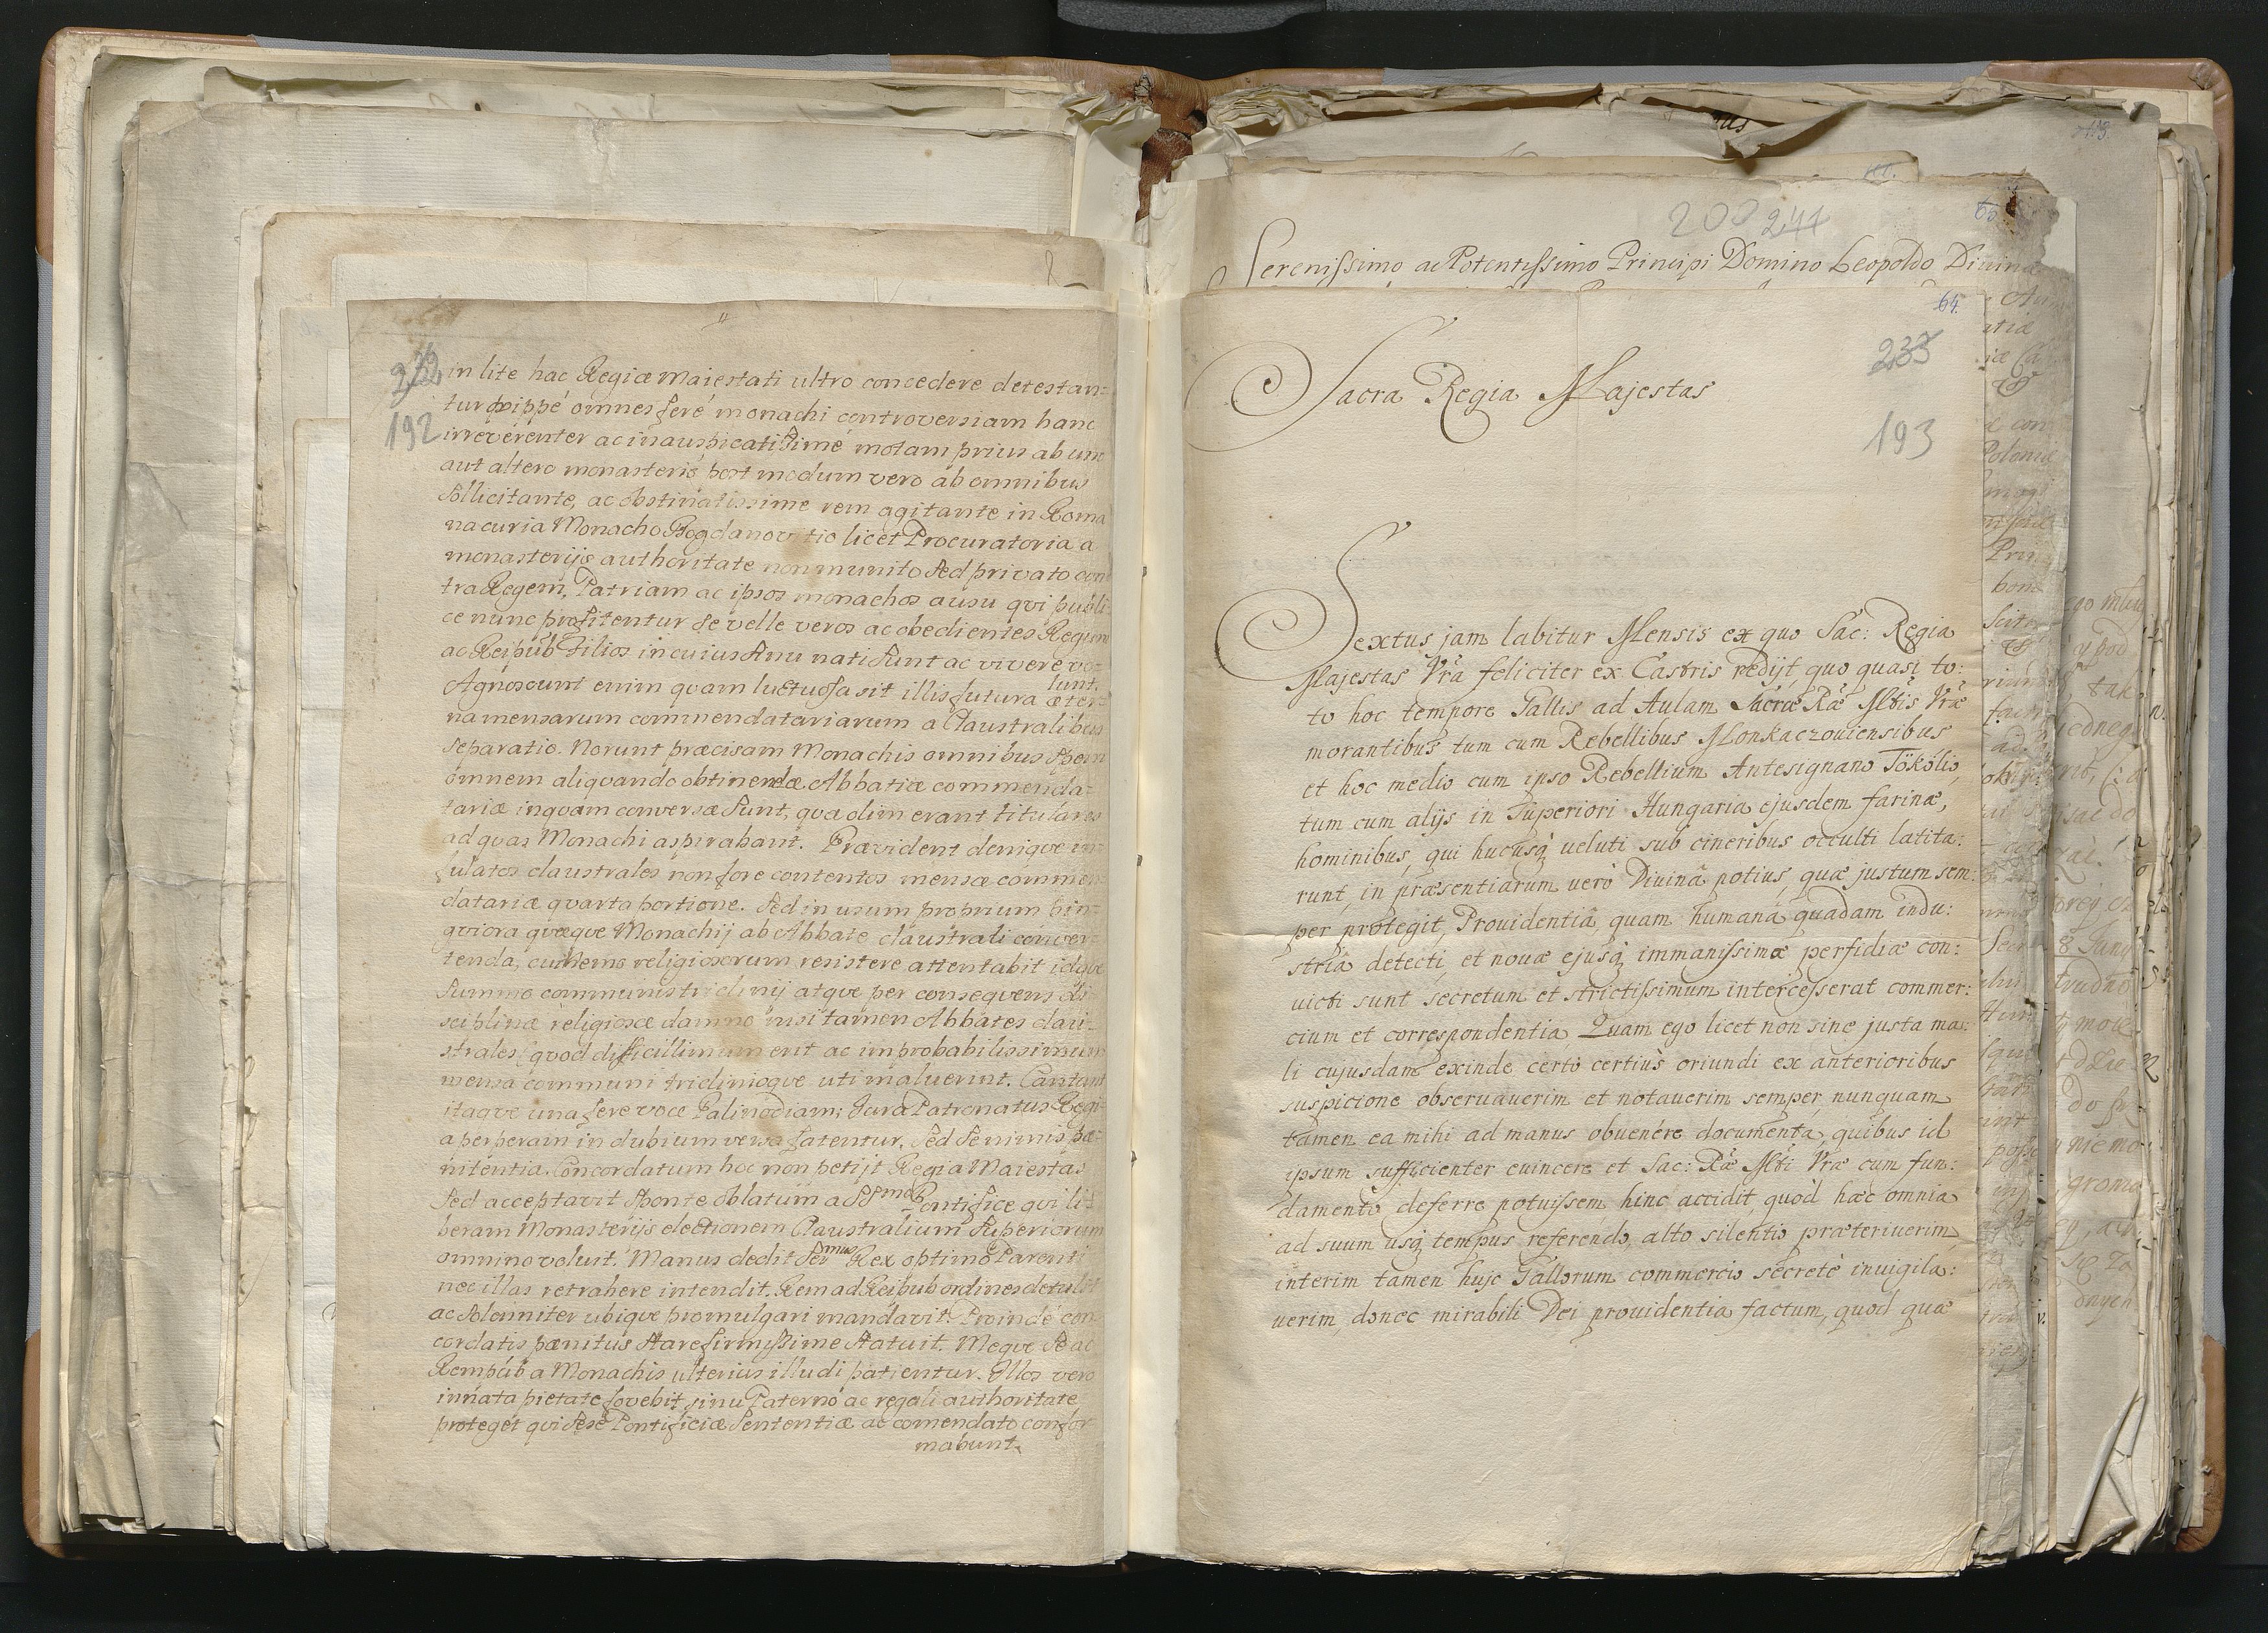 232
192
in lite hac Regiæ Maiestati ultro concedere detestan=
tur quippé omnes feré monachi controversiam hanc
irreverenter ac inauspicatissime motam prius ab uno
aut altero monasterio, post modum vero ab omnibus
sollicitante, ac obstinatissime rem agitante in Roma
na curia Monacho Bogdanovitio licet Procuratoria a
monasterijs authoritate non munito sed privato con
tra Regem, Patriam ac ipsos monachos ausu qvi publi
ce nunc profitentur se velle veros ac obedientes Regum
ac Reipub filios in cuius sinu nati sunt ac vivere vo=
lunt.
Agnoscunt enim qvam luctuosa sit illis futura æter=
na mensarum commendatariarum a Claustralibus
separatio. Norunt præcisam Monachis omnibus spem
omnem aliquando obtinendæ Abbatiæ commenda=
tariæ inqvam conversæ sunt, qvæ olim erant titulares
ad qvas Monachi aspirabant. Prævident deniqve in
fulatos claustrales non fore contentos mensæ commen
datariæ qvarta portione. Sed in usum proprium pin=
gviora qvæqve Monachij ab Abbate claustrali conver=
tenda, cui nemo religiosorum resistere attentabit idqve
summo communis triclinij atqve per conseqvens di
sciplinæ religiosæ damno nisi tamen Abbates clau=
strales (qvod difficillimum erit ac improbabilissimum
mensa communi triclinioqve uti maluerint. Cantant
itaqve una fere voce Palinodiam; Jura Patronatus Regi=
a perperam in dubium versa fatentur. Sed se nimis pæ=
nitentia. Concordatum hoc non petijt Regia Maiestas
sed acceptavit sponte oblatum a SSmo Pontifice qvi li=
beram Monasterijs electionem Claustralium Superiorum
omnino voluit. Manus dedit Sermus Rex optimo Parenti
nec illas retrahere intendit. Rem ad Reipub ordines detulit
ac solenniter ubiqve promulgari mandavit. Proinde con
cordatis pænitus stare firmissime statuit. Neqve se ac
Rempub a Monachis ulterius illudi patientur. Illos vero
innata pietate fovebit, sinu Paterno ac regali authoritate
proteget qvi sese Pontificiæ sententiæ ac comendato confor
mabunt.
200 241
Serenissimo ac Potentissimo Principi Domino Leopoldo Divina
64.
233
193
Sacra Regia Majestas
Sextus jam labitur Mensis ex quo Sac: Regia
Majestas Vrã feliciter ex Castris redijt, quo quasi to:
to hoc tempore Gallis ad Aulam Sacræ Ræ Mtis Vræ
morantibus tum cum Rebellibus Monkaczoviensibus
et hoc medio cum ipso Rebellium Antesignano Tökölio,
tum cum alijs in Superiori Hungaria ejusdem farinæ,
hominibus, qui hucusq ueluti sub cineribus occulti latita:
runt, in præsentiarum verò Diuinâ potius, quæ justum sem:
per protegit, Prouidentiâ, quam humanâ quadam indu:
striâ detecti, et nouæ ejusq immanissimæ perfidiæ con:
uicti sunt secretum et strictissimum intercesserat commer:
cium et correspondentia. Quam ego licet non sine justa ma:
li cujusdam exinde certò certiùs oriundi ex anterioribus
suspicione obseruauerim et notauerim semper, nunquam
tamen ea mihi ad manus obuenêre documenta, quibus id
ipsum sufficienter euincere et Sac: Ræ Mti Vræ cum fun:
damento deferre potuissem, hinc accidit, quòd hæc omnia
ad suum usq tempus referendo, alto silentio præteriuerim,
interim tamen hujc Gallorum commercio secretè inuigila:
uerim, donec mirabili Dei prouidentia factum, quod quæ